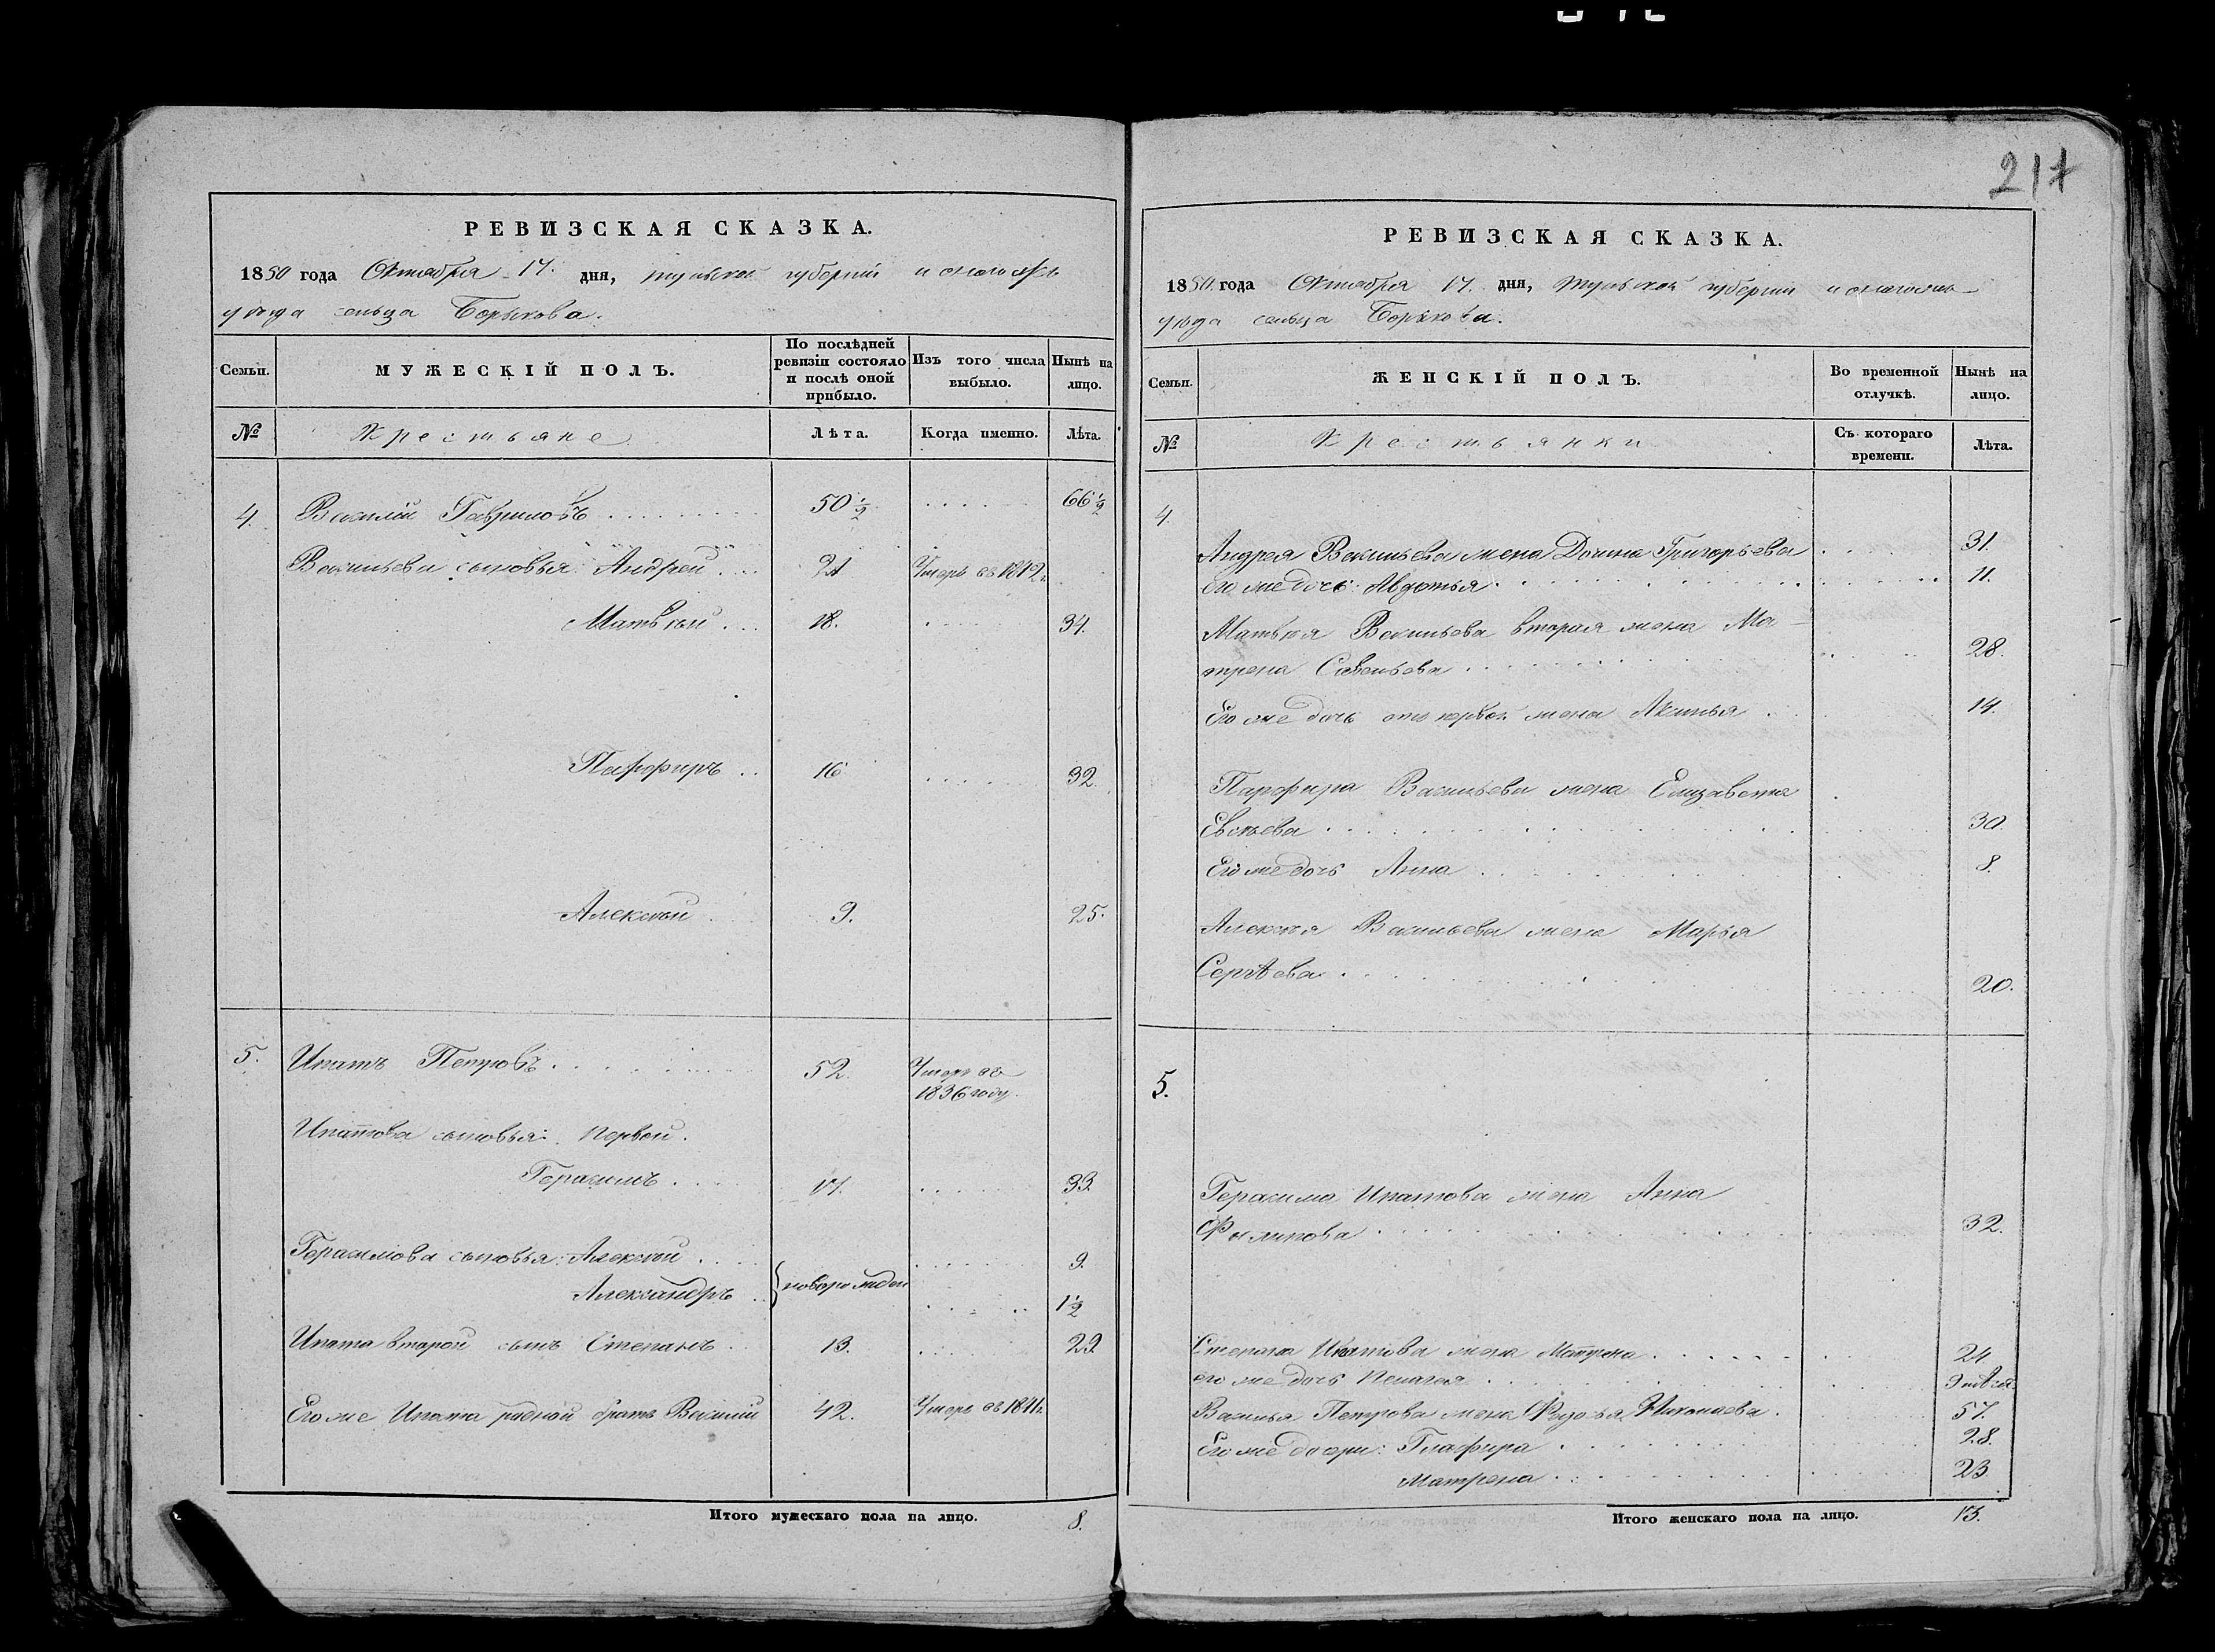 217
РЕВИЗСКАЯ СКАЗКА.
1850 года Октября 17. дня, тульской губернии
уезда сельца Борыкова.
Семьи. МУЖЕСКІЙ ПОЛЪ. По послѣдней ревизіи состояло и послѣ оной прибыло. Изъ того числа выбыло. Нынѣ на лицо.
№ Крестьяне Лѣта. Когда именно. Лѣта.
4. Василій Гавриловъ 50 1/2 66 1/2
Васильевы сыновья: Андрей 21 Умеръ въ 1842.
Матвѣй 18. 34.
Парфиръ 16 32.
Алексѣй 9. 25.
5. Ипатъ Петровъ 52. Умеръ въ
1836 году.
Ипатова сыновья: первой.
Герасимъ 17. 33.
Герасимова сыновья: Алексѣй 9.
Александръ новорожден 1 1/2
Ипата второй сынъ Степанъ 13. 29.
Его же Ипата родной братъ Василій 42. Умеръ въ 1841.
Итого мужескаго пола на лицо. 8.
РЕВИЗСКАЯ СКАЗКА.
1850. года Октября 17. дня, Тульской губернии
уезда сельца Борыкова.
Семьи. ЖЕНСКІЙ ПОЛЪ. Во временной отлучкѣ. Нынѣ на лицо.
№ Крестьянки Съ котораго времени. Лѣта.
4.
Андрея Васильева жена Домна Григорьева 31.
Его же дочь: Авдотья 11.
Матвѣя Васильева вторая жена Ма-
трена Савельева 28.
Его же дочь отъ первой жена Аксинья 14.
Парфира Васильева жена Елизавета
Евсѣева 30.
Его же дочь Анна 8.
Алексѣя Васильева жена Марья
Сергѣева 20.
5.
Герасима Ипатова жена Анна
Филипова 32.
Степана Ипатова жена Матрена 24
его же дочь Пелагея 9
Василья Петрова жена Николаева 57.
Его же дочери: Глафира 28.
Матрена 23.
Итого женскаго пола на лицо. 13.